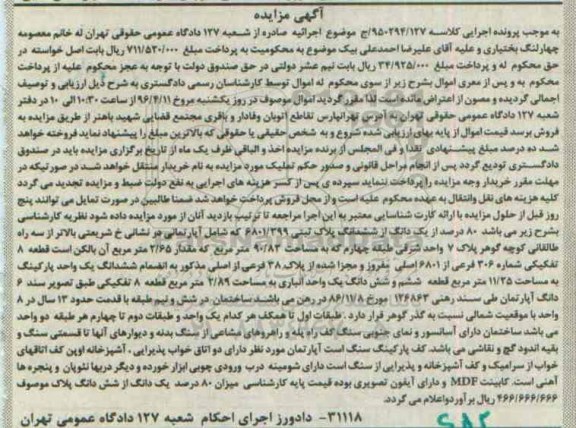 آگهی مزایده
به موجب پرونده اجرایی کلاسه ۹۵۰۲۹۴/۱۲۷/ج موضوع اجرائیه صادره از شعبه ۱۲۷ دادگاه عمومی حقوقی تهران له خانم معصومه
چهارلنگ بختیاری و علیه آقای علیرضا احمدعلی بیک موضوع به محکومیت به پرداخت مبلغ ۷۱۱/۵۳۰/۰۰۰ ریال بابت اصل خواسته در
حق محکوم له و پرداخت مبلغ ۳۴/۹۲۵/۰۰۰ ریال بابت نیم عشر دولتی در حق صندوق دولت با توجه به عجز محکوم علیه از پرداخت
محکوم به و پس از معرفی اموال بشرح زیر از سوی محکوم له اموال توسط کارشناسان رسمی دادگستری به شرح ذیل ارزیابی و توصیف
اجمالی گردیده و مصون از اعتراض مانده است لذا مقرر گردید اموال موصوف در روز یکشنبه مورخ ۹۶/۴/۱۱ از ساعت ۱۰:۳۰ الی ۱۰ در دفتر
شعبه ۱۲۷ دادگاه عمومی حقوقی تهران به آدرس تهرانپارس تقاطع اتوبان وفادار و باقری مجتمع قضایی شهید باهنر از طریق مزایده به
فروش برسد قیمت اموال از پایه بهای ارزیابی شده شروع و به شخص حقیقی یا حقوقی که بالاترین مبلغ را پیشنهاد نماید فروخته خواهد
شد ده درصد مبلغ پیشنهادی نقدا و فی المجلس از برنده مزایده اخذ و الباقی ظرف یک ماه از تاریخ برگزاری مزایده باید در صندوق
دادگستری تودیع گردد پس از انجام مراحل قانونی و صدور حکم تملیک مورد مزایده به نام خریدار منتقل خواهد شد در صورتیکه در
مهلت مقرر خریدار وجه مزایده را پرداخت ننماید سپرده ی پس از کسر هزینه های اجرایی به نفع دولت ضبط و مزایده تجدید می گردد
کلیه هزینه های نقل وانتقال به عهده محکوم علیه است و از محل فروش پرداخت خواهد شد ضمنا طالبین در صورت تمایل می توانند پنج
روز قبل از حلول مزایده با ارائه کارت شناسایی معتبر به این اجرا مراجعه تا ترتیب بازدید آنان از مورد مزایده داده شود نظریه کارشناسی
بشرح زیر می باشد ۸۰ درصد از یک دانگ از ششدانگ پلاک ثبتی ۶۸۰۱/۳۹۹ که شامل آپارتمانی در نشانی خ شریعتی بالاتر از سه راه
طالقانی کوچه گوهر پلاک ۷ واحد شرقی طبقه چهارم که به مساحت ۹۰/۸۳ متر مربع که مقدار ۲/۶۵ متر مربع آن بالکن است قطعه ۸
تفکیکی شماره ۳۰۶ فرعی از ۶۸۰۱ اصلی مفروز و مجزا شده از پلاک ۳۸ فرعی از اصلی مذکور به انضمام ششدانگ یک واحد پارکینگ
به مساحت ۱۱/۲۵ متر مربع قطعه ششم و شش دانگ یک واحد انباری به مساحت ۲/۸۹ متر مربع قطعه ۸ تفکیکی طبق تصویر سند ۶
دانگ آپارتمان طی سند رهنی ۱۲۶۸۶۳ مورخ ۸۶/۱۱/۸ در رهن می باشد ساختمان در شش و نیم طبقه با قدمت حدود ۱۳ سال در ۸
واحد با موقعیت شمالی نسبت به گذر گوهر قرار دارد . طبقات اول تا همکف هر کدام یک واحد و طبقات دوم تا چهارم هر طبقه دو واحد
می باشد ساختمان دارای آسانسور و نمای جنوبی سنگ کف راه پله و راهروهای مشاعی از سنگ بدنه و دیوارهای آنها تا قسمتی سنگ و
بقیه اندود گچ و نقاشی می باشد. کف پارکینگ سنگ است آپارتمان مورد نظر دارای دو اتاق خواب پذیرایی ، آشپزخانه اوپن کف اتاقهای
خواب از سرامیک و کف آشپزخانه و پذیرایی از سنگ است دارای شومینه درب ورودی چوبی ابزار خورده و دیگر دربها نئوپان و پنجره ها
آهنی است. کابینت MDF و دارای آیفون تصویری بوده قیمت پایه کارشناسی میزان ۸۰ درصد یک دانگ از شش دانگ پلاک موصوف
۴۶۶/۶۶۶/۶۶۶ ریال برآورد واعلام می گردد.
۳۱۱۱۸- دادورز اجرای احکام شعبه ۱۲۷ دادگاه عمومی تهران